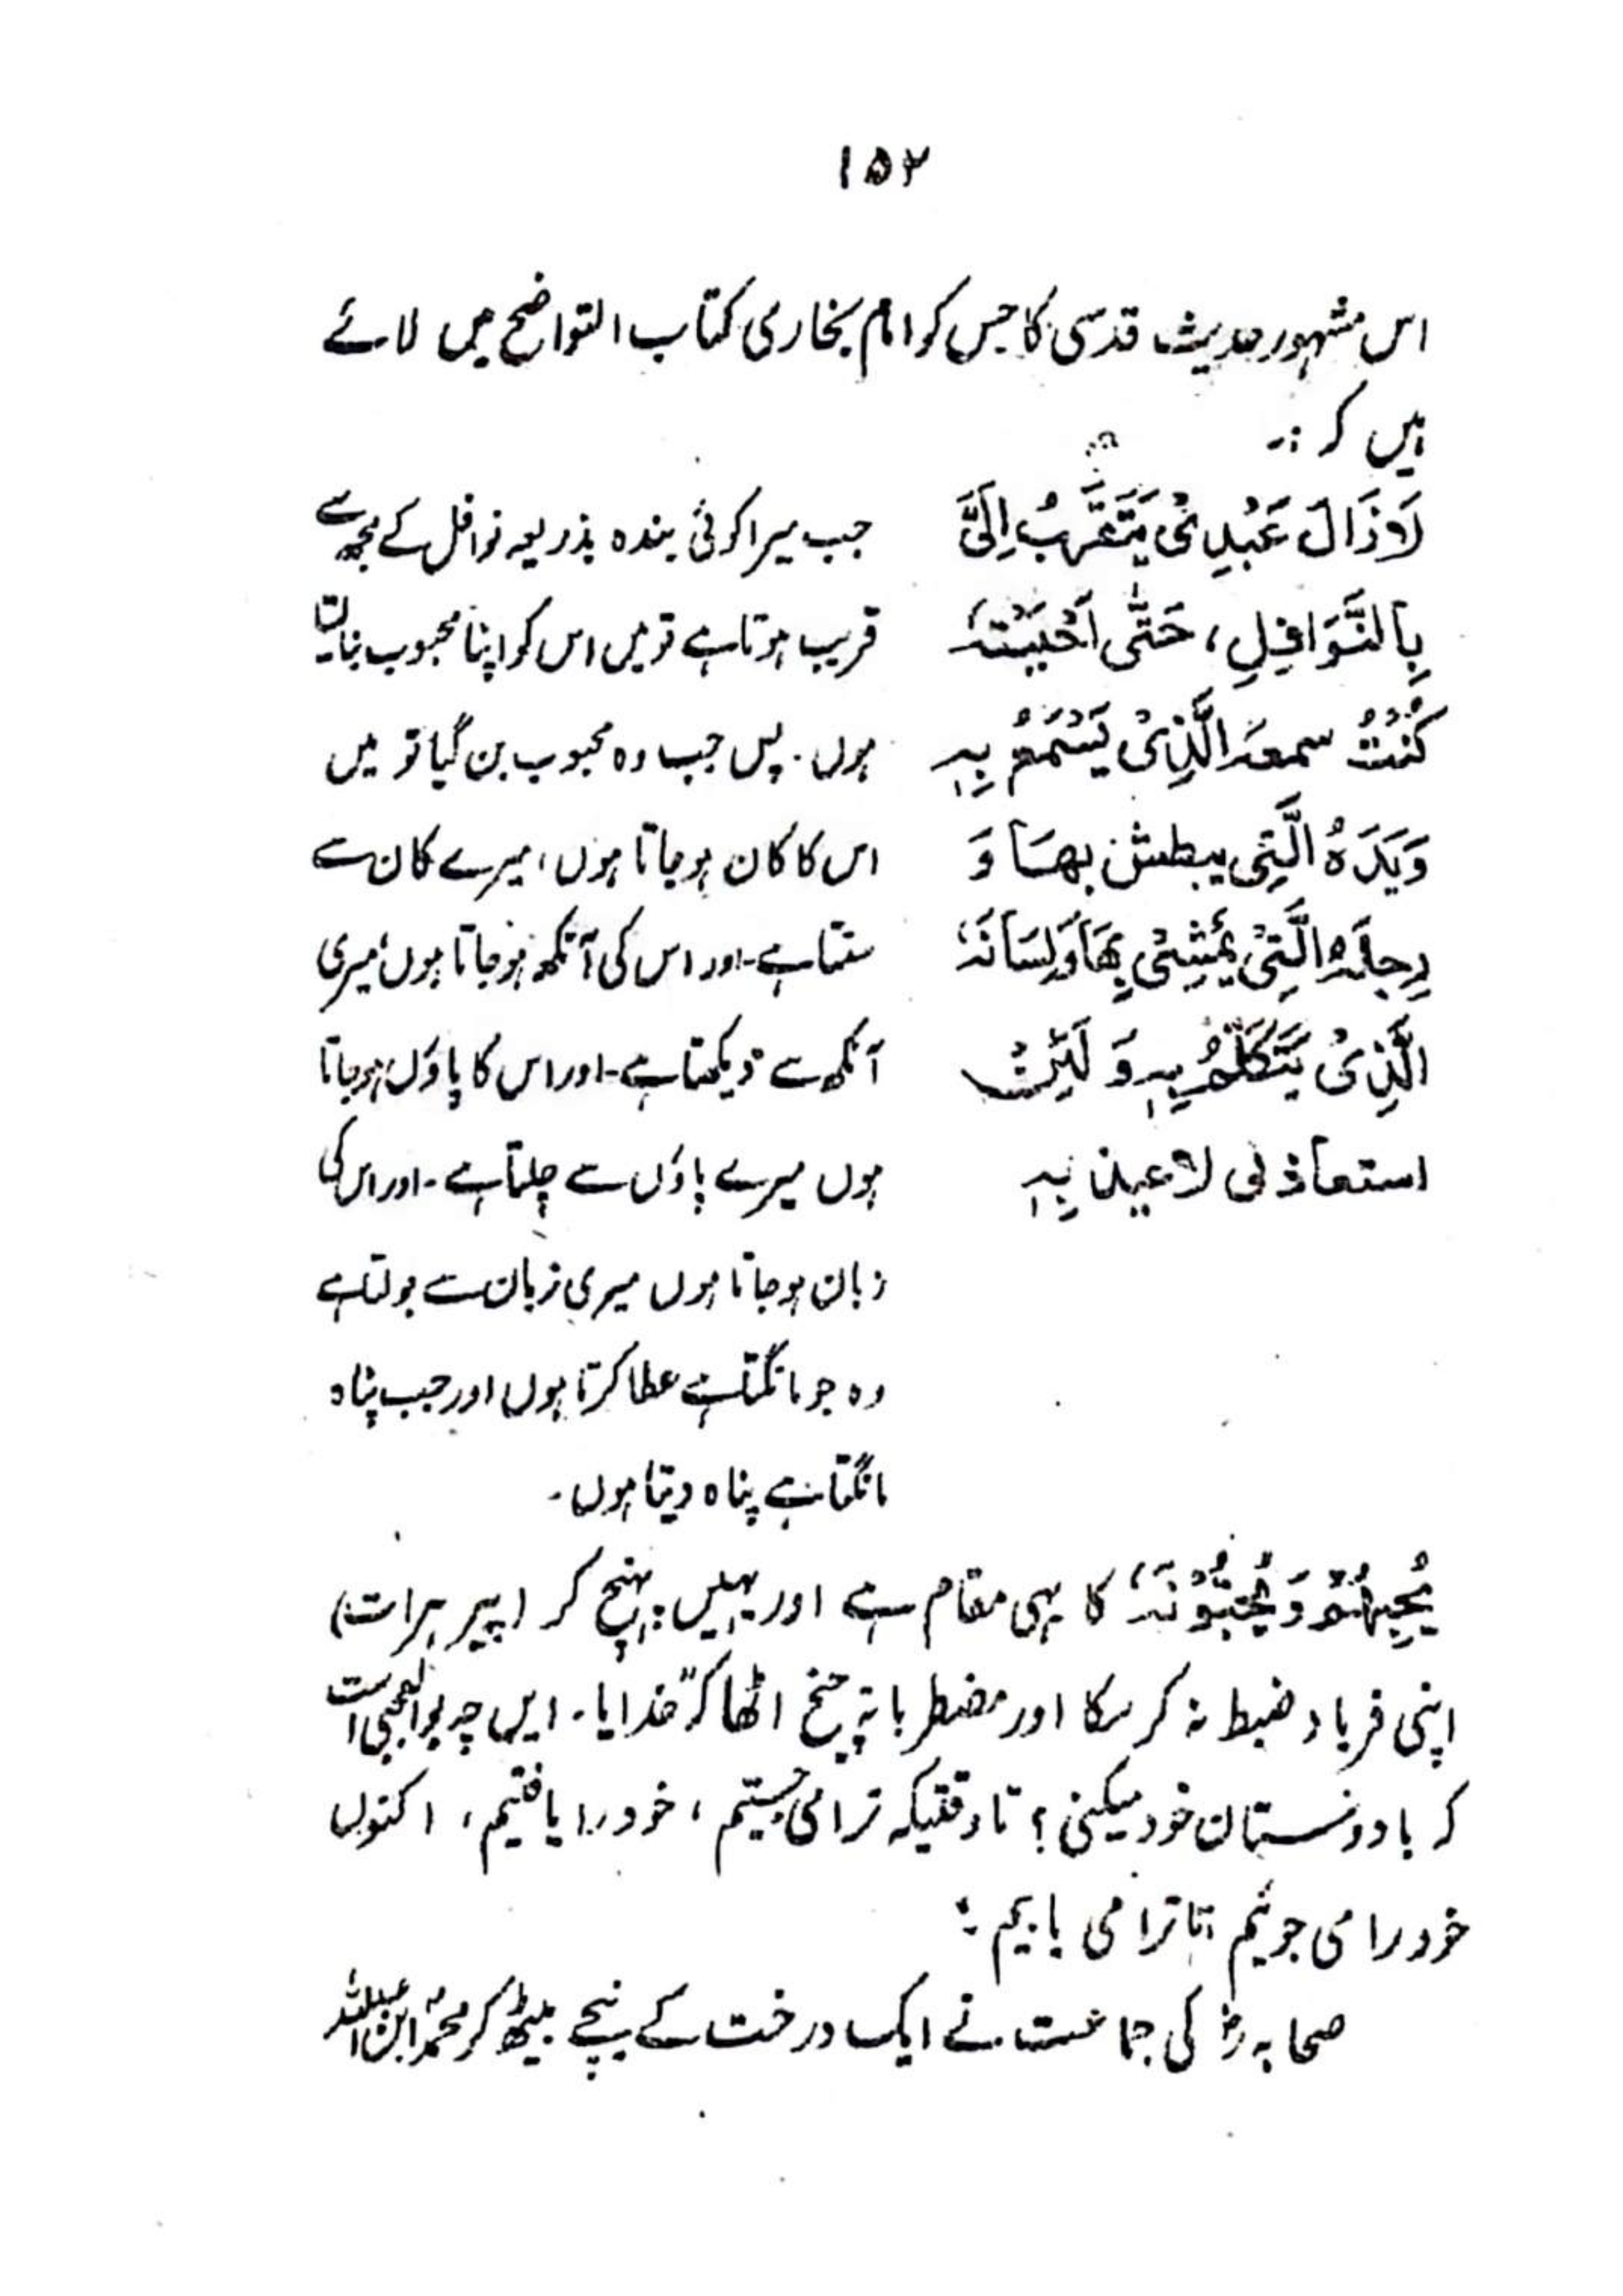 ۱۵۲
اس مشہور حدیث قدسی کا جس کو امام بخاری کتاب التواضح میں لائے
ہیں کہ :۔
لَا زَالَ عَبْدِیْ یَتَقَرَّبُ اِلَیَّ
بِالنَّوَافِلِ، حَتّٰی اَحْبَبْتُہٗ
کُنْتُ سمعہَ الَّذِیْ یَسْمَعُ بِہٖ
وَیَدَہُ الَّتِی یبطش بھَا وَ
رِجلَہُ الَّتِیْ یَمْشِیْ بِھَا وَلِسَانَہٗ
الَّذِیْ یَتَکَلَّمُ بِہٖ وَ لَئِنْ
استعاذ نی لاعیذن بِہٖ
جب میرا کوئی بندہ بذریعہ نوافل کے مجھ سے
قریب ہوتا ہے تو میں اس کو اپنا محبوب بنا لیتا
ہوں۔ پس جب وہ محبوب بن گیا تو میں
اس کا کان ہو جاتا ہوں، میرے کان سے
سنتا ہے۔ اور اس کی آنکھ ہو جاتا ہوں، میری
آنکھ سے دیکھتا ہے۔ اور اس کا پاؤں ہو جاتا
ہوں میرے پاؤں سے چلتا ہے۔ اور اس کی
زبان ہو جاتا ہوں میری زبان سے بولتا ہے
وہ جو مانگتا ہے عطا کرتا ہوں اور جب پناہ
مانگتا ہے پناہ دیتا ہوں۔
یُحِبُّھُمْ وَ یُحِبُّوْنَہٗ کا یہی مقام ہے اور یہیں پہنچ کر (پیر ہرات)
اپنی فریاد ضبط نہ کر سکا اور مضطربانہ چیخ اٹھا کہ ”خدایا۔ ایں چہ بوالعجبی است
کہ با دوستان خود میکنی؟ تا وقتیکہ ترا می جستیم، خود را یافتیم، اکنوں
خود را می جوئیم تا ترا می یابیم؛
صحابہ رضؓ کی جماعت نے ایک درخت کے نیچے بیٹھ کر محمدؐ ابن عبداللہ